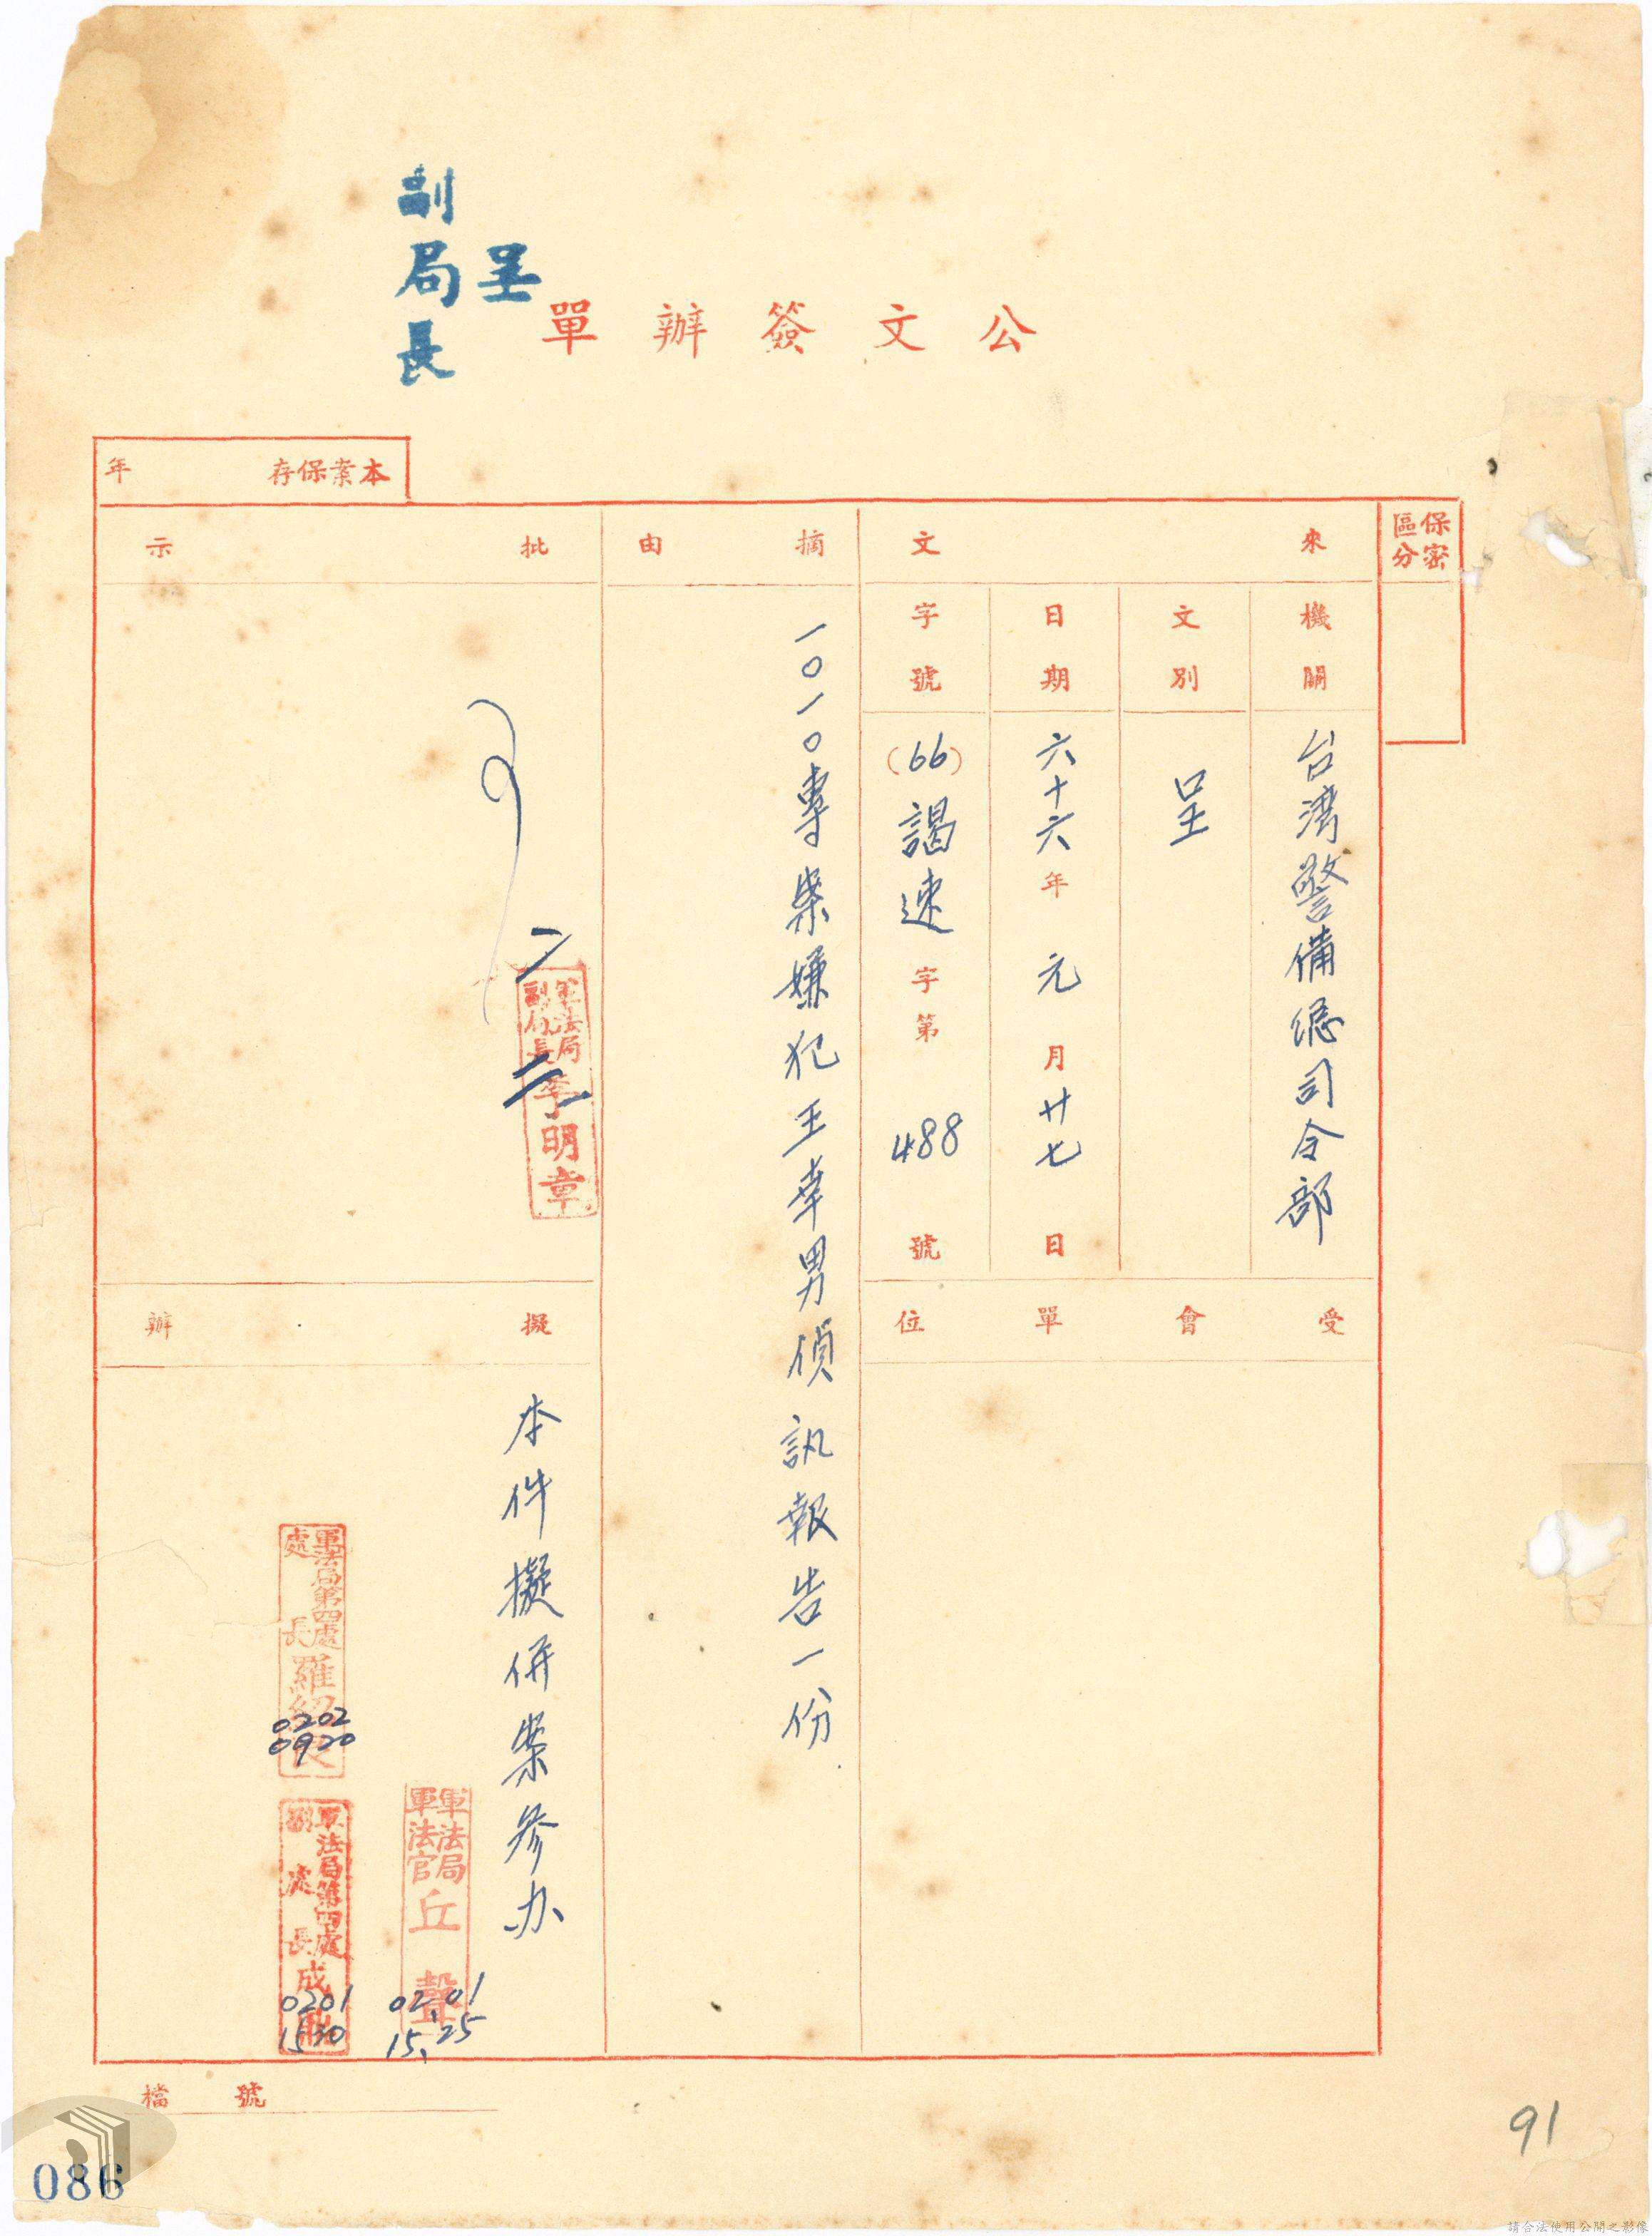 呈
副局長
公文簽辦單
本案保存 年
保密區分
來文
機關
台湾警備總司令部
文別
呈
日期
六十六年元月廿七日
字號
(66)謁速字第488號
受會單位
摘由
一〇一〇專案嫌犯王幸男偵訊報告一份
批示
軍法局
副局長 李明章
擬辦
本件擬併案參办
軍法局
軍法官 丘聲
0201
15,25
軍法局第四處
處長 羅
0202
0920
軍法局第四處
副處長 成
0201
1530
檔號
086
91
請合法使用公開之影像